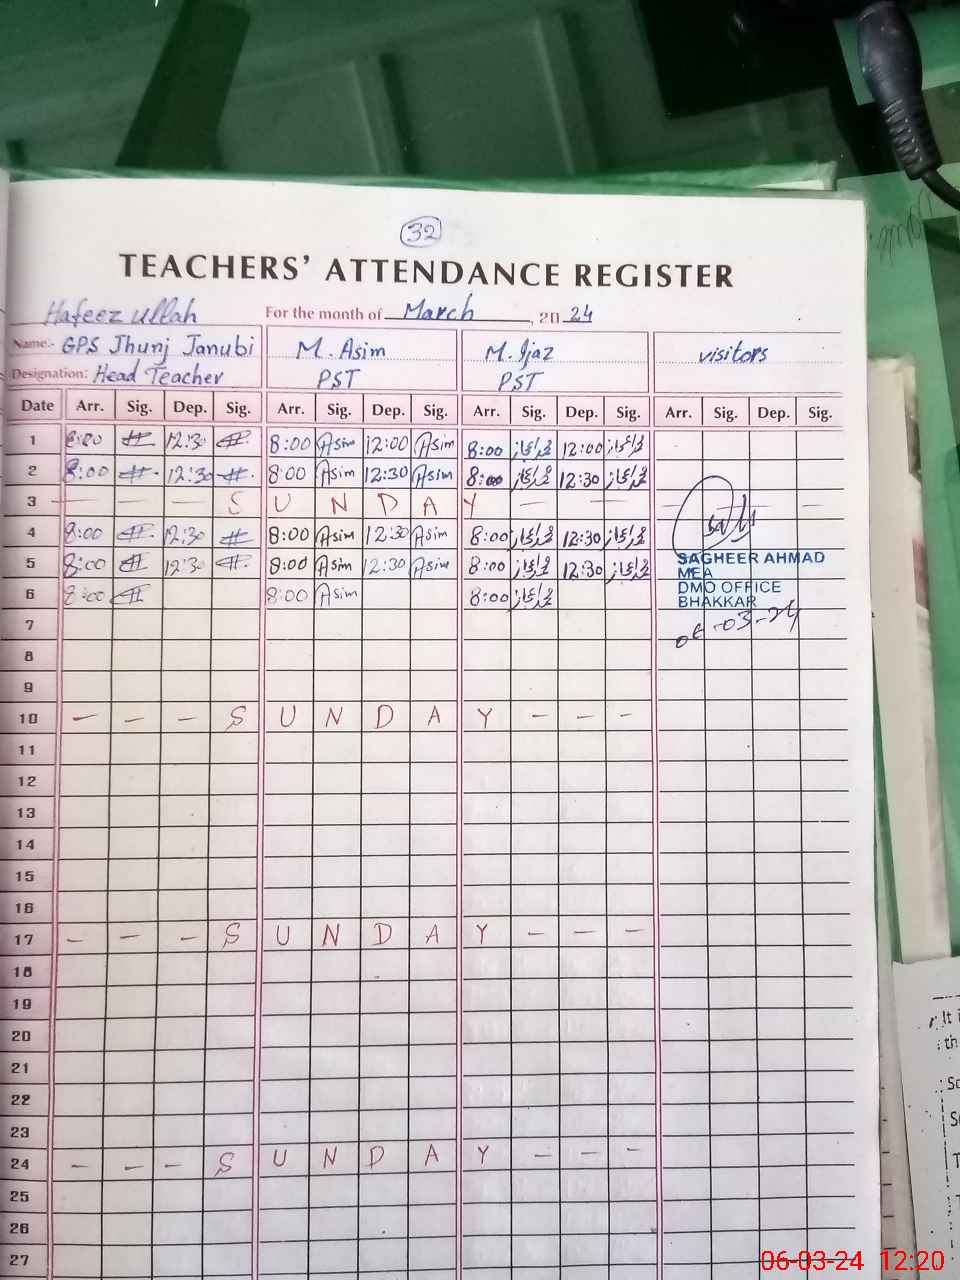 32
TEACHERS' ATTENDANCE REGISTER
Hafeez ullah For the month of March, 2024
Name:- GPS Jhunj Janubi M. Asim M. Ijaz visitors
Designation: Head Teacher PST PST
Date Arr. Sig. Dep. Sig. Arr. Sig. Dep. Sig. Arr. Sig. Dep. Sig. Arr. Sig. Dep. Sig.
1 8:00 12:30 8:00 Asim 12:00 Asim 8:00 12:00
2 8:00 12:30 8:00 Asim 12:30 Asim 8:00 12:30
3 — — — S U N D A Y — — — — —
4 8:00 12:30 8:00 Asim 12:30 Asim 8:00 12:30
5 8:00 12:30 8:00 Asim 12:30 Asim 8:00 12:30
6 8:00 8:00 Asim 8:00
SAGHEER AHMAD
MEA
DMO OFFICE
BHAKKAR
06-03-24
7
8
9
10 — — — S U N D A Y — — —
11
12
13
14
15
16
17 — — — S U N D A Y — — —
18
19
20
21
22
23
24 — — — S U N D A Y — — —
25
26
27
It
th
06-03-24 12:20